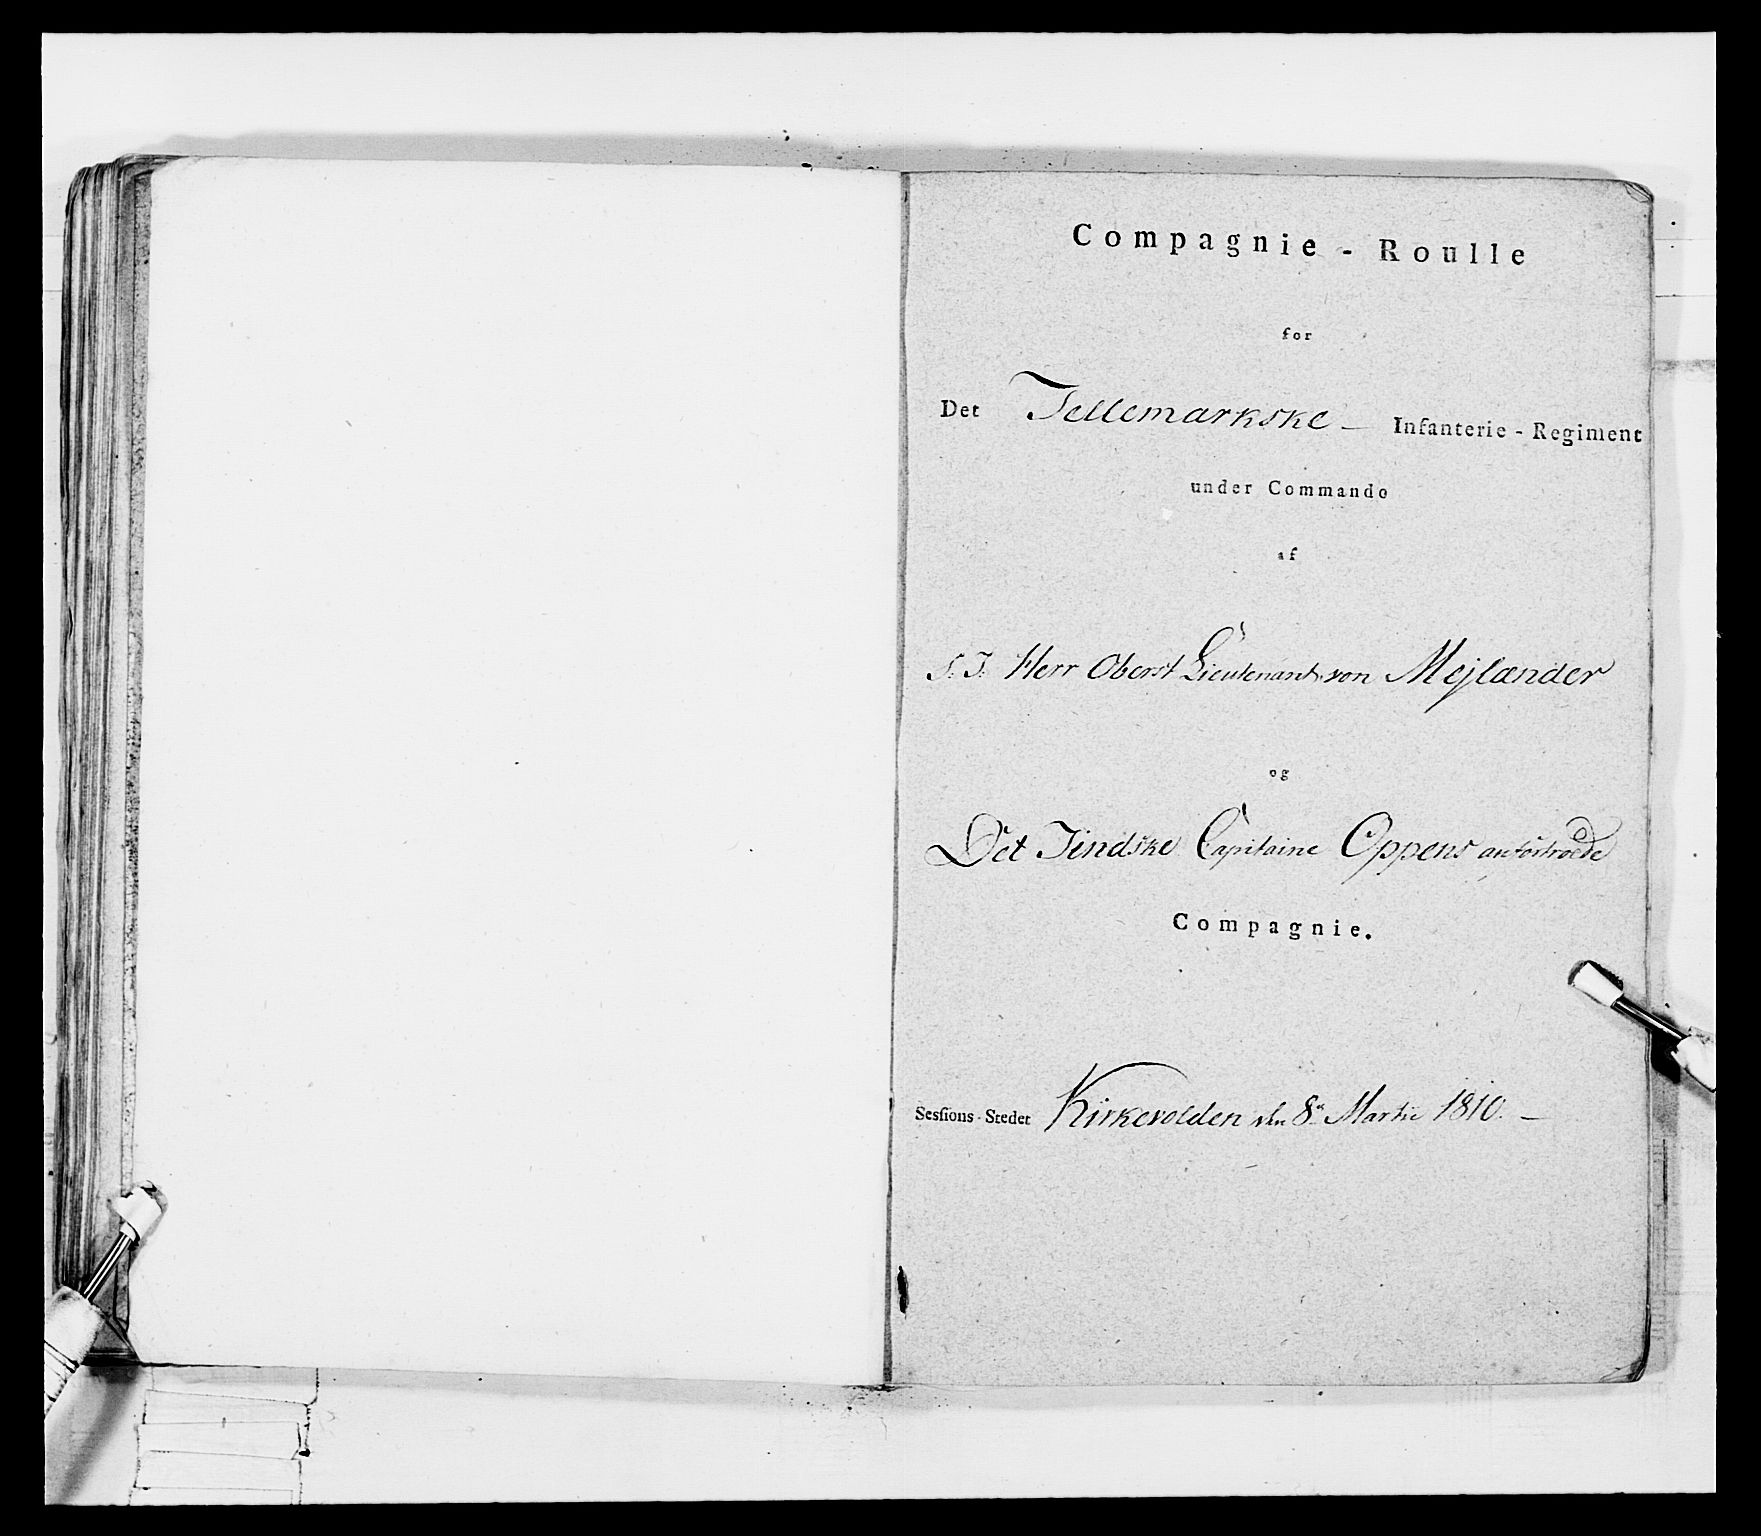 Compagnie - Roulle
for
Det Tellemarkske — Infanterie - Regiment
under Commando
af
S. T. Herr Oberst Lieutenant von Mejlænder
og
Det Tindske Capitaine Oppens anfortroede
Compagnie.
Sessions-Stedet Kirkevolden den 8de Martii 1810. —